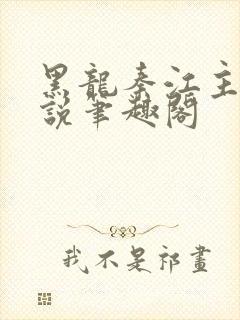 黑龍秦江主
說筆趣閣
我不是祁畫